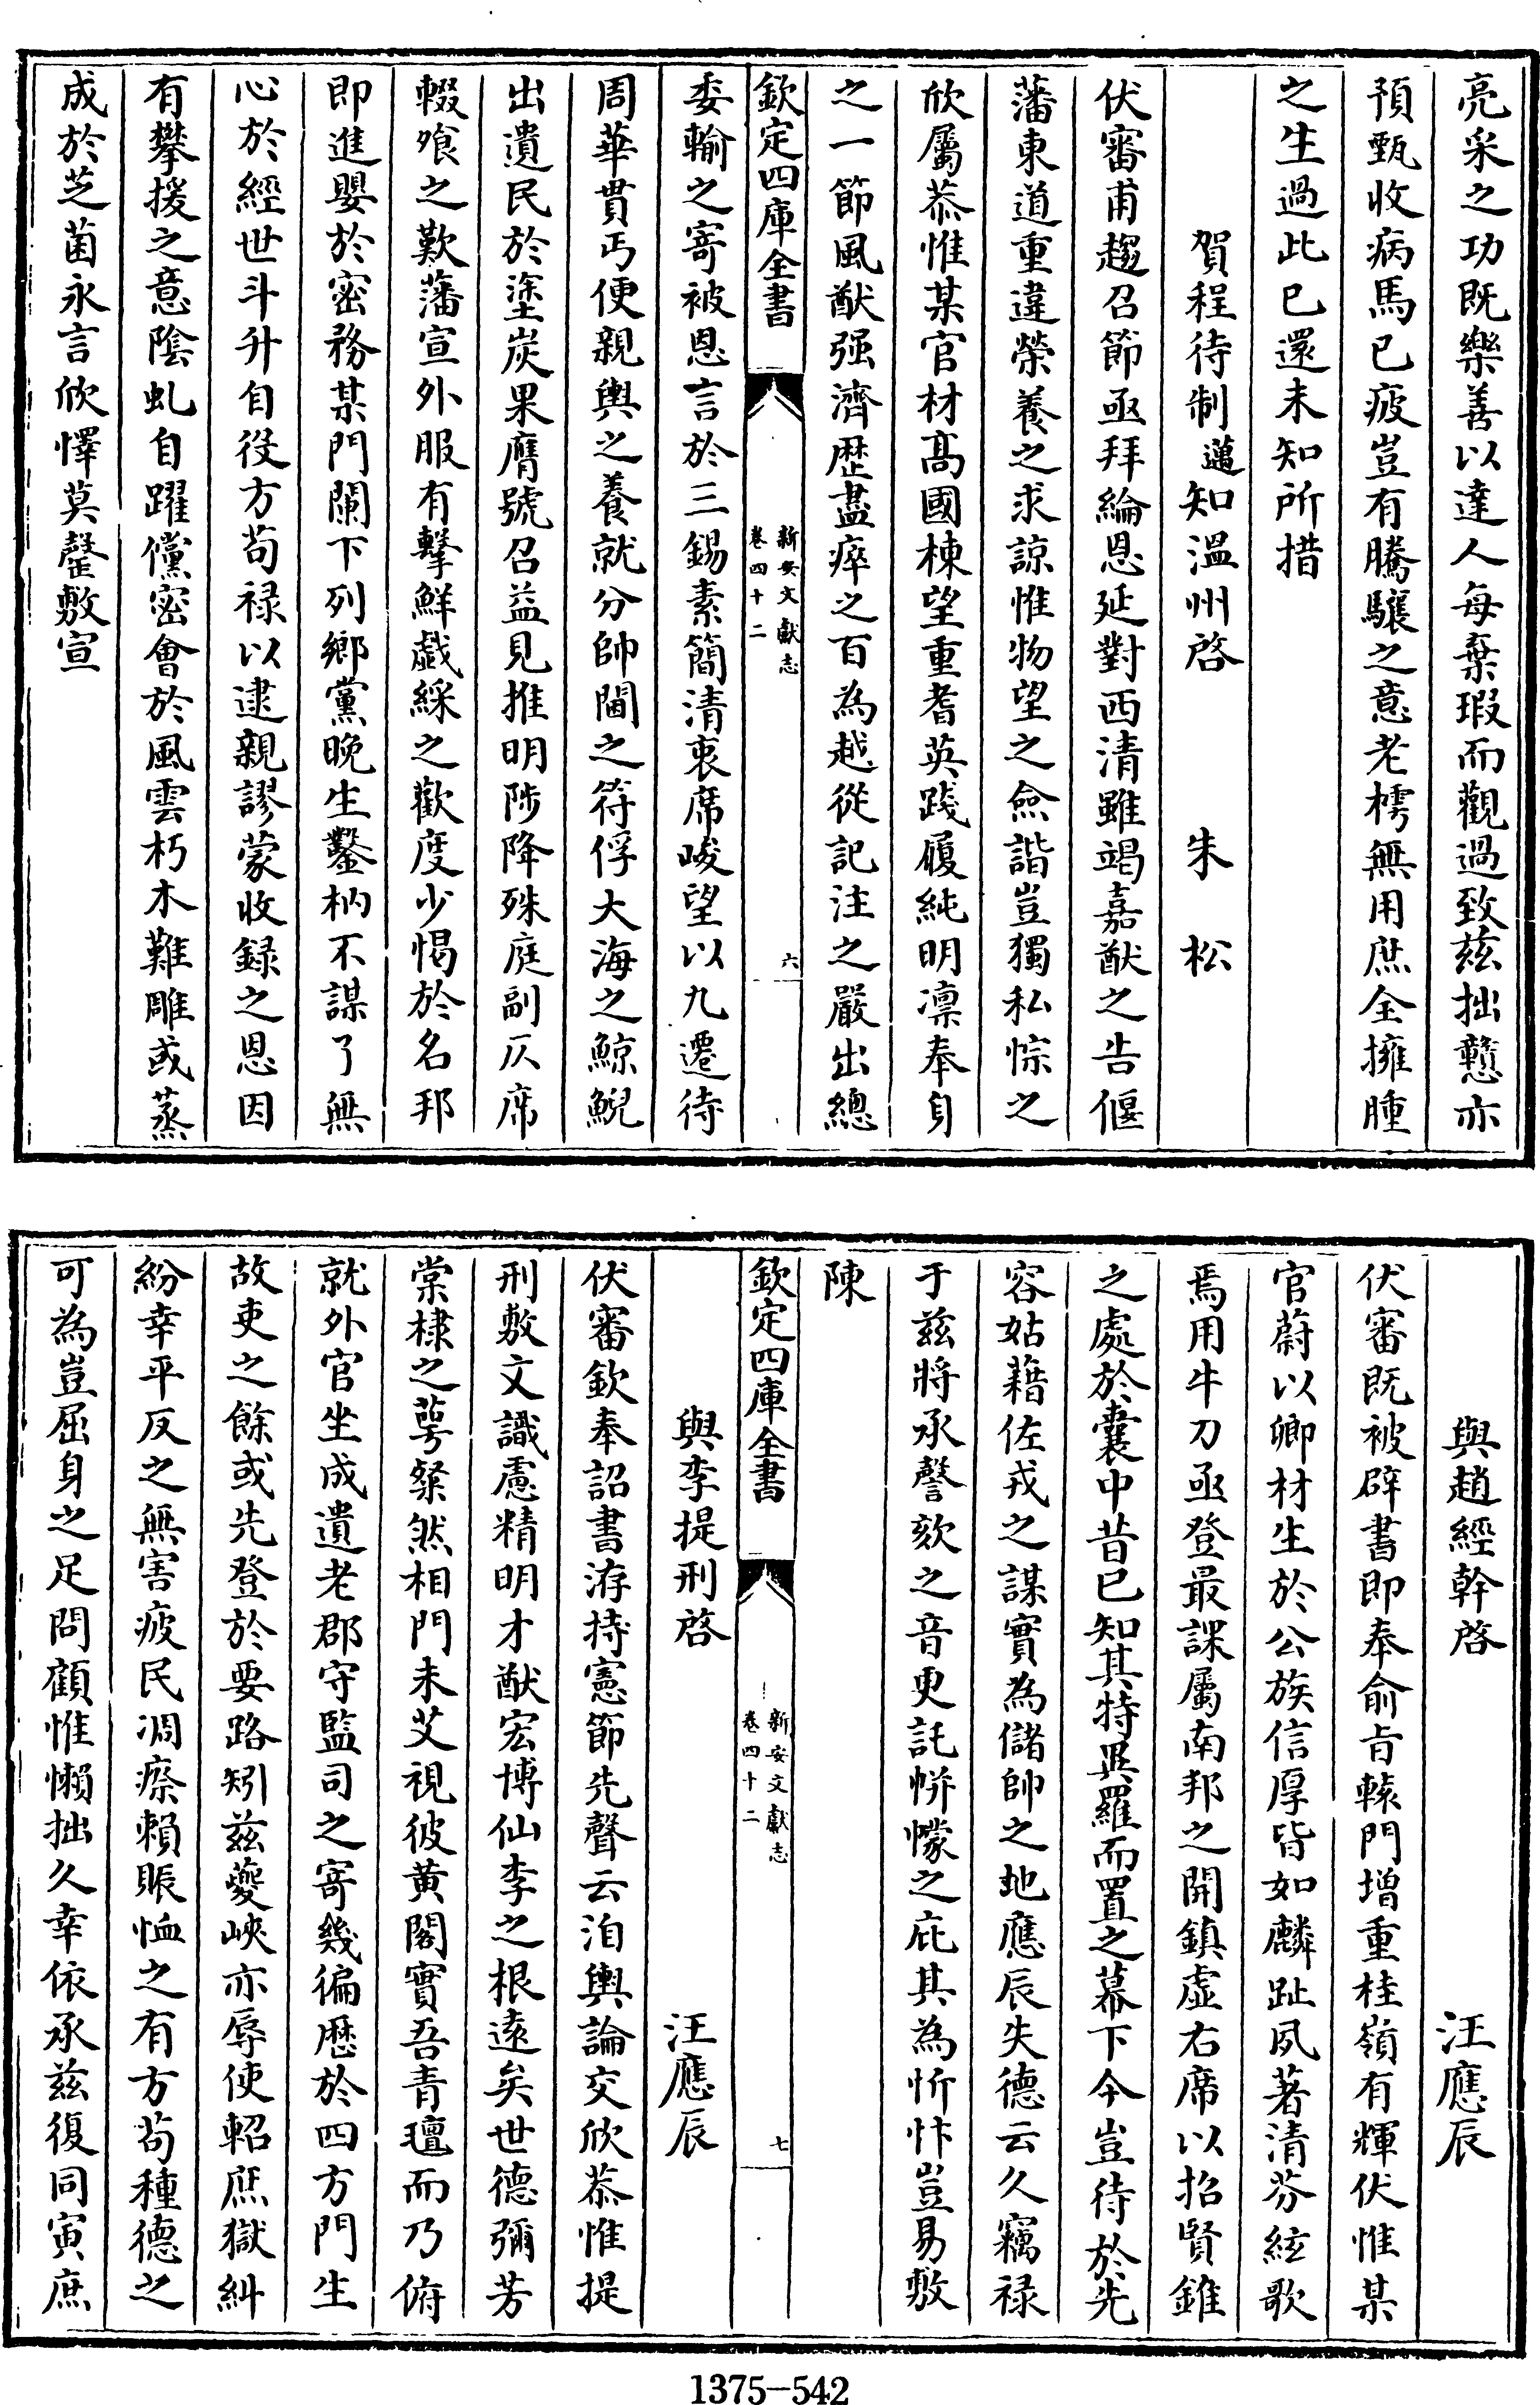 亮采之功既樂善以達人每棄瑕而觀過致兹拙戇亦
預甄收病馬已疲豈有騰驤之意老樗無用庶全擁腫
之生過此已還未知所措
賀程待制邁知溫州啓　朱松
伏審甫趨召節亟拜綸恩延對西清雖竭嘉猷之告偃
藩東道重違榮養之求諒惟物望之僉諧豈獨私悰之
欣屬恭惟某官材髙國棟望重耆英踐履純明凛奉身
之一節風猷强濟歴盡瘁之百為越從記注之嚴出總
欽定四庫全書
新安文獻志
卷四十二
六
委輸之寄被恩言於三錫素簡清衷席峻望以九遷待
周華貫丐便親輿之養就分帥閫之符俘大海之鯨鯢
出遺民於塗炭果膺號召益見推明陟降殊庭副仄席
輟飱之歎藩宣外服有擊鮮戯綵之歡度少愒於名邦
即進嬰於密務某門闌下列鄉黨晚生鑿枘不謀了無
心於經世斗升自役方苟禄以逮親謬蒙收録之恩因
有攀援之意陰虬自躍儻密會於風雲朽木難雕或蒸
成於芝菌永言欣懌莫罄敷宣
與趙經幹啓　汪應辰
伏審既被辟書即奉俞旨轅門增重桂嶺有輝伏惟某
官蔚以卿材生於公族信厚皆如麟趾夙著清芬絃歌
焉用牛刀亟登最課屬南邦之開鎮虚右席以招賢錐
之處於囊中昔已知其特異羅而置之幕下今豈待於先
容姑藉佐戎之謀實為儲帥之地應辰失德云久竊禄
于兹將承謦欬之音更託帡幪之庇其為忻忭豈易敷
陳
欽定四庫全書
新安文獻志
卷四十二
七
與李提刑啓　汪應辰
伏審欽奉詔書洊持憲節先聲云洎輿論交欣恭惟提
刑敷文識慮精明才猷宏博仙李之根遠矣世德彌芳
棠棣之蕚粲然相門未艾視彼黄閣實吾青氊而乃俯
就外官坐成遺老郡守監司之寄幾徧歴於四方門生
故吏之餘或先登於要路矧兹夔峽亦辱使軺庶獄糾
紛幸平反之無害疲民凋瘵賴賑恤之有方茍種德之
可為豈屈身之足問顧惟懶拙久幸依承兹復同寅庶
1375-542